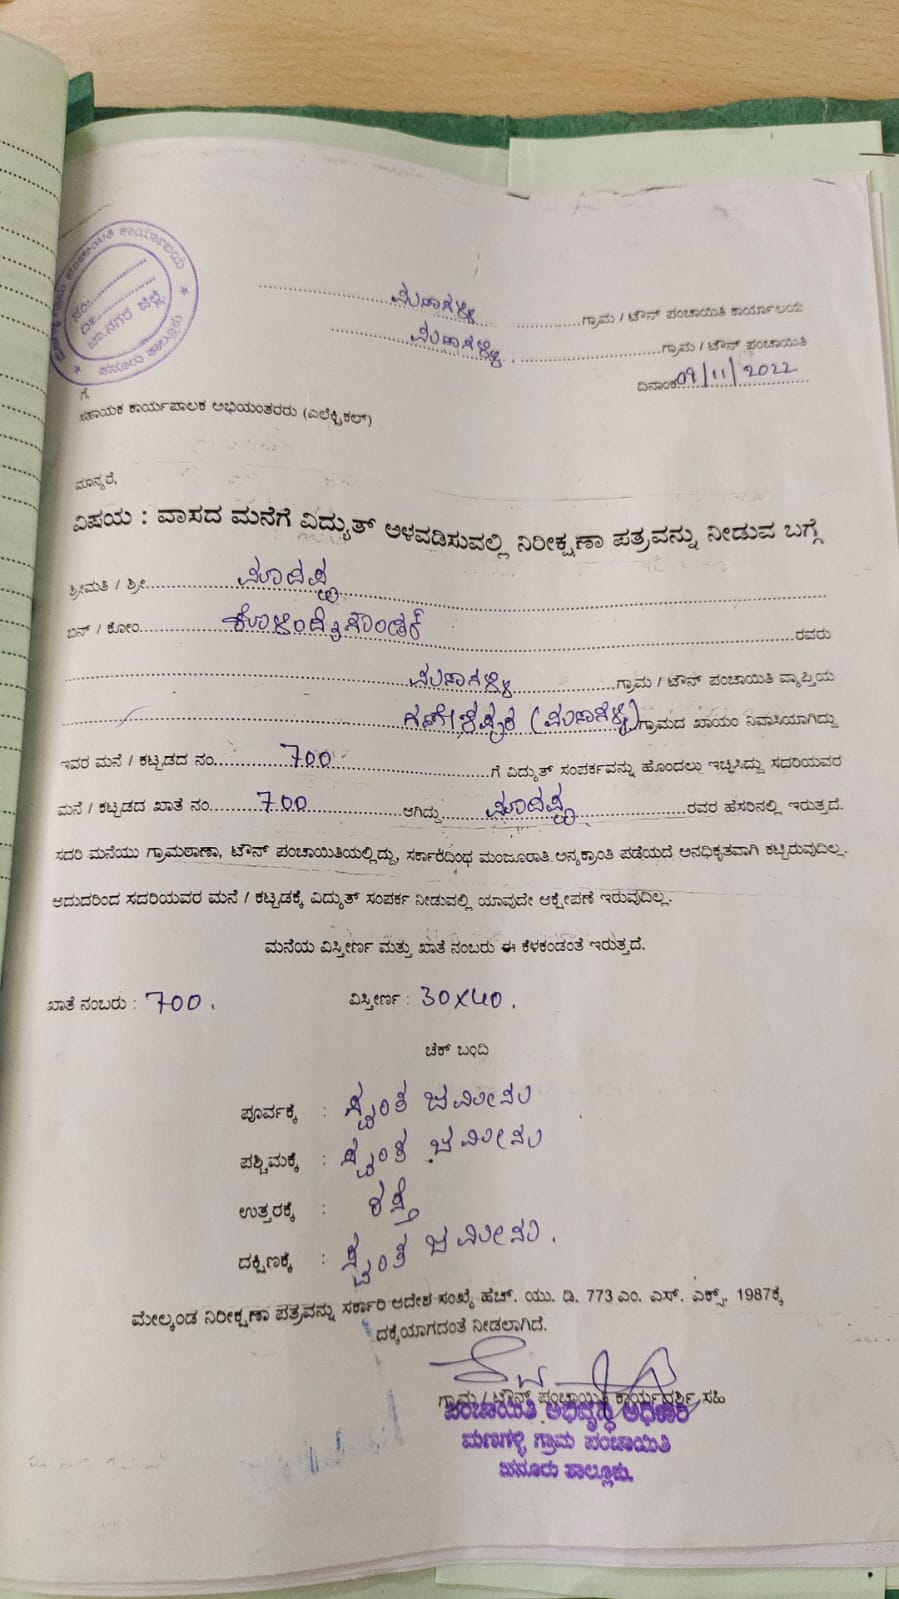 ಗ್ರಾಮ ಪಂಚಾಯಿತಿ ಕಾರ್ಯಾಲಯ
ನಂ:
ದಿ:
ಚಾ.ನಗರ ಜಿಲ್ಲೆ
ಹನೂರು ತಾಲ್ಲೂಕು
ಮಣಗಳ್ಳಿ ಗ್ರಾಮ / ಟೌನ್ ಪಂಚಾಯಿತಿ ಕಾರ್ಯಾಲಯ
ಮಣಗಳ್ಳಿ ಗ್ರಾಮ / ಟೌನ್ ಪಂಚಾಯಿತಿ
ದಿನಾಂಕ 09/11/2022
ಗೆ,
ಸಹಾಯಕ ಕಾರ್ಯಪಾಲಕ ಅಭಿಯಂತರರು (ಎಲೆಕ್ಟ್ರಿಕಲ್)
ಮಾನ್ಯರೆ,
ವಿಷಯ : ವಾಸದ ಮನೆಗೆ ವಿದ್ಯುತ್ ಅಳವಡಿಸುವಲ್ಲಿ ನಿರೀಕ್ಷಣಾ ಪತ್ರವನ್ನು ನೀಡುವ ಬಗ್ಗೆ
ಶ್ರೀಮತಿ / ಶ್ರೀ ಮಾದಪ್ಪ
ಬಿನ್ / ಕೋಂ ರವರು
ಮಣಗಳ್ಳಿ ಗ್ರಾಮ / ಟೌನ್ ಪಂಚಾಯಿತಿ ವ್ಯಾಪ್ತಿಯ
(ಮಣಗಳ್ಳಿ) ಗ್ರಾಮದ ಖಾಯಂ ನಿವಾಸಿಯಾಗಿದ್ದು
ಇವರ ಮನೆ / ಕಟ್ಟಡದ ನಂ 700 ಗೆ ವಿದ್ಯುತ್ ಸಂಪರ್ಕವನ್ನು ಹೊಂದಲು ಇಚ್ಛಿಸಿದ್ದು ಸದರಿಯವರ
ಮನೆ / ಕಟ್ಟಡದ ಖಾತೆ ನಂ 700 ಆಗಿದ್ದು ಮಾದಪ್ಪ ರವರ ಹೆಸರಿನಲ್ಲಿ ಇರುತ್ತದೆ.
ಸದರಿ ಮನೆಯು ಗ್ರಾಮಠಾಣಾ, ಟೌನ್ ಪಂಚಾಯಿತಿಯಲ್ಲಿದ್ದು, ಸರ್ಕಾರದಿಂಧ ಮಂಜೂರಾತಿ ಅನ್ಯಕ್ರಾಂತಿ ಪಡೆಯದೆ ಅನಧಿಕೃತವಾಗಿ ಕಟ್ಟಿರುವುದಿಲ್ಲ.
ಆದುದರಿಂದ ಸದರಿಯವರ ಮನೆ / ಕಟ್ಟಡಕ್ಕೆ ವಿದ್ಯುತ್ ಸಂಪರ್ಕ ನೀಡುವಲ್ಲಿ ಯಾವುದೇ ಆಕ್ಷೇಪಣೆ ಇರುವುದಿಲ್ಲ.
ಮನೆಯ ವಿಸ್ತೀರ್ಣ ಮತ್ತು ಖಾತೆ ನಂಬರು ಈ ಕೆಳಕಂಡಂತೆ ಇರುತ್ತದೆ.
ಖಾತೆ ನಂಬರು : 700. ವಿಸ್ತೀರ್ಣ : 30X40.
ಚೆಕ್ ಬಂದಿ
ಪೂರ್ವಕ್ಕೆ : ಸ್ವಂತ ಜಮೀನು
ಪಶ್ಚಿಮಕ್ಕೆ : ಸ್ವಂತ ಜಮೀನು
ಉತ್ತರಕ್ಕೆ : ರಸ್ತೆ
ದಕ್ಷಿಣಕ್ಕೆ : ಸ್ವಂತ ಜಮೀನು.
ಮೇಲ್ಕಂಡ ನಿರೀಕ್ಷಣಾ ಪತ್ರವನ್ನು ಸರ್ಕಾರಿ ಆದೇಶ ಸಂಖ್ಯೆ ಹೆಚ್. ಯು. ಡಿ. 773 ಎಂ. ಎಸ್. ಎಕ್ಸ್. 1987ಕ್ಕೆ
ದಕ್ಕೆಯಾಗದಂತೆ ನೀಡಲಾಗಿದೆ.
ಗ್ರಾಮ / ಟೌನ್ ಪಂಚಾಯಿತಿ ಕಾರ್ಯದರ್ಶಿ ಸಹಿ
ಪಂಚಾಯಿತಿ ಅಭಿವೃದ್ಧಿ ಅಧಿಕಾರಿ
ಮಣಗಳ್ಳಿ ಗ್ರಾಮ ಪಂಚಾಯಿತಿ
ಹನೂರು ತಾಲ್ಲೂಕು.